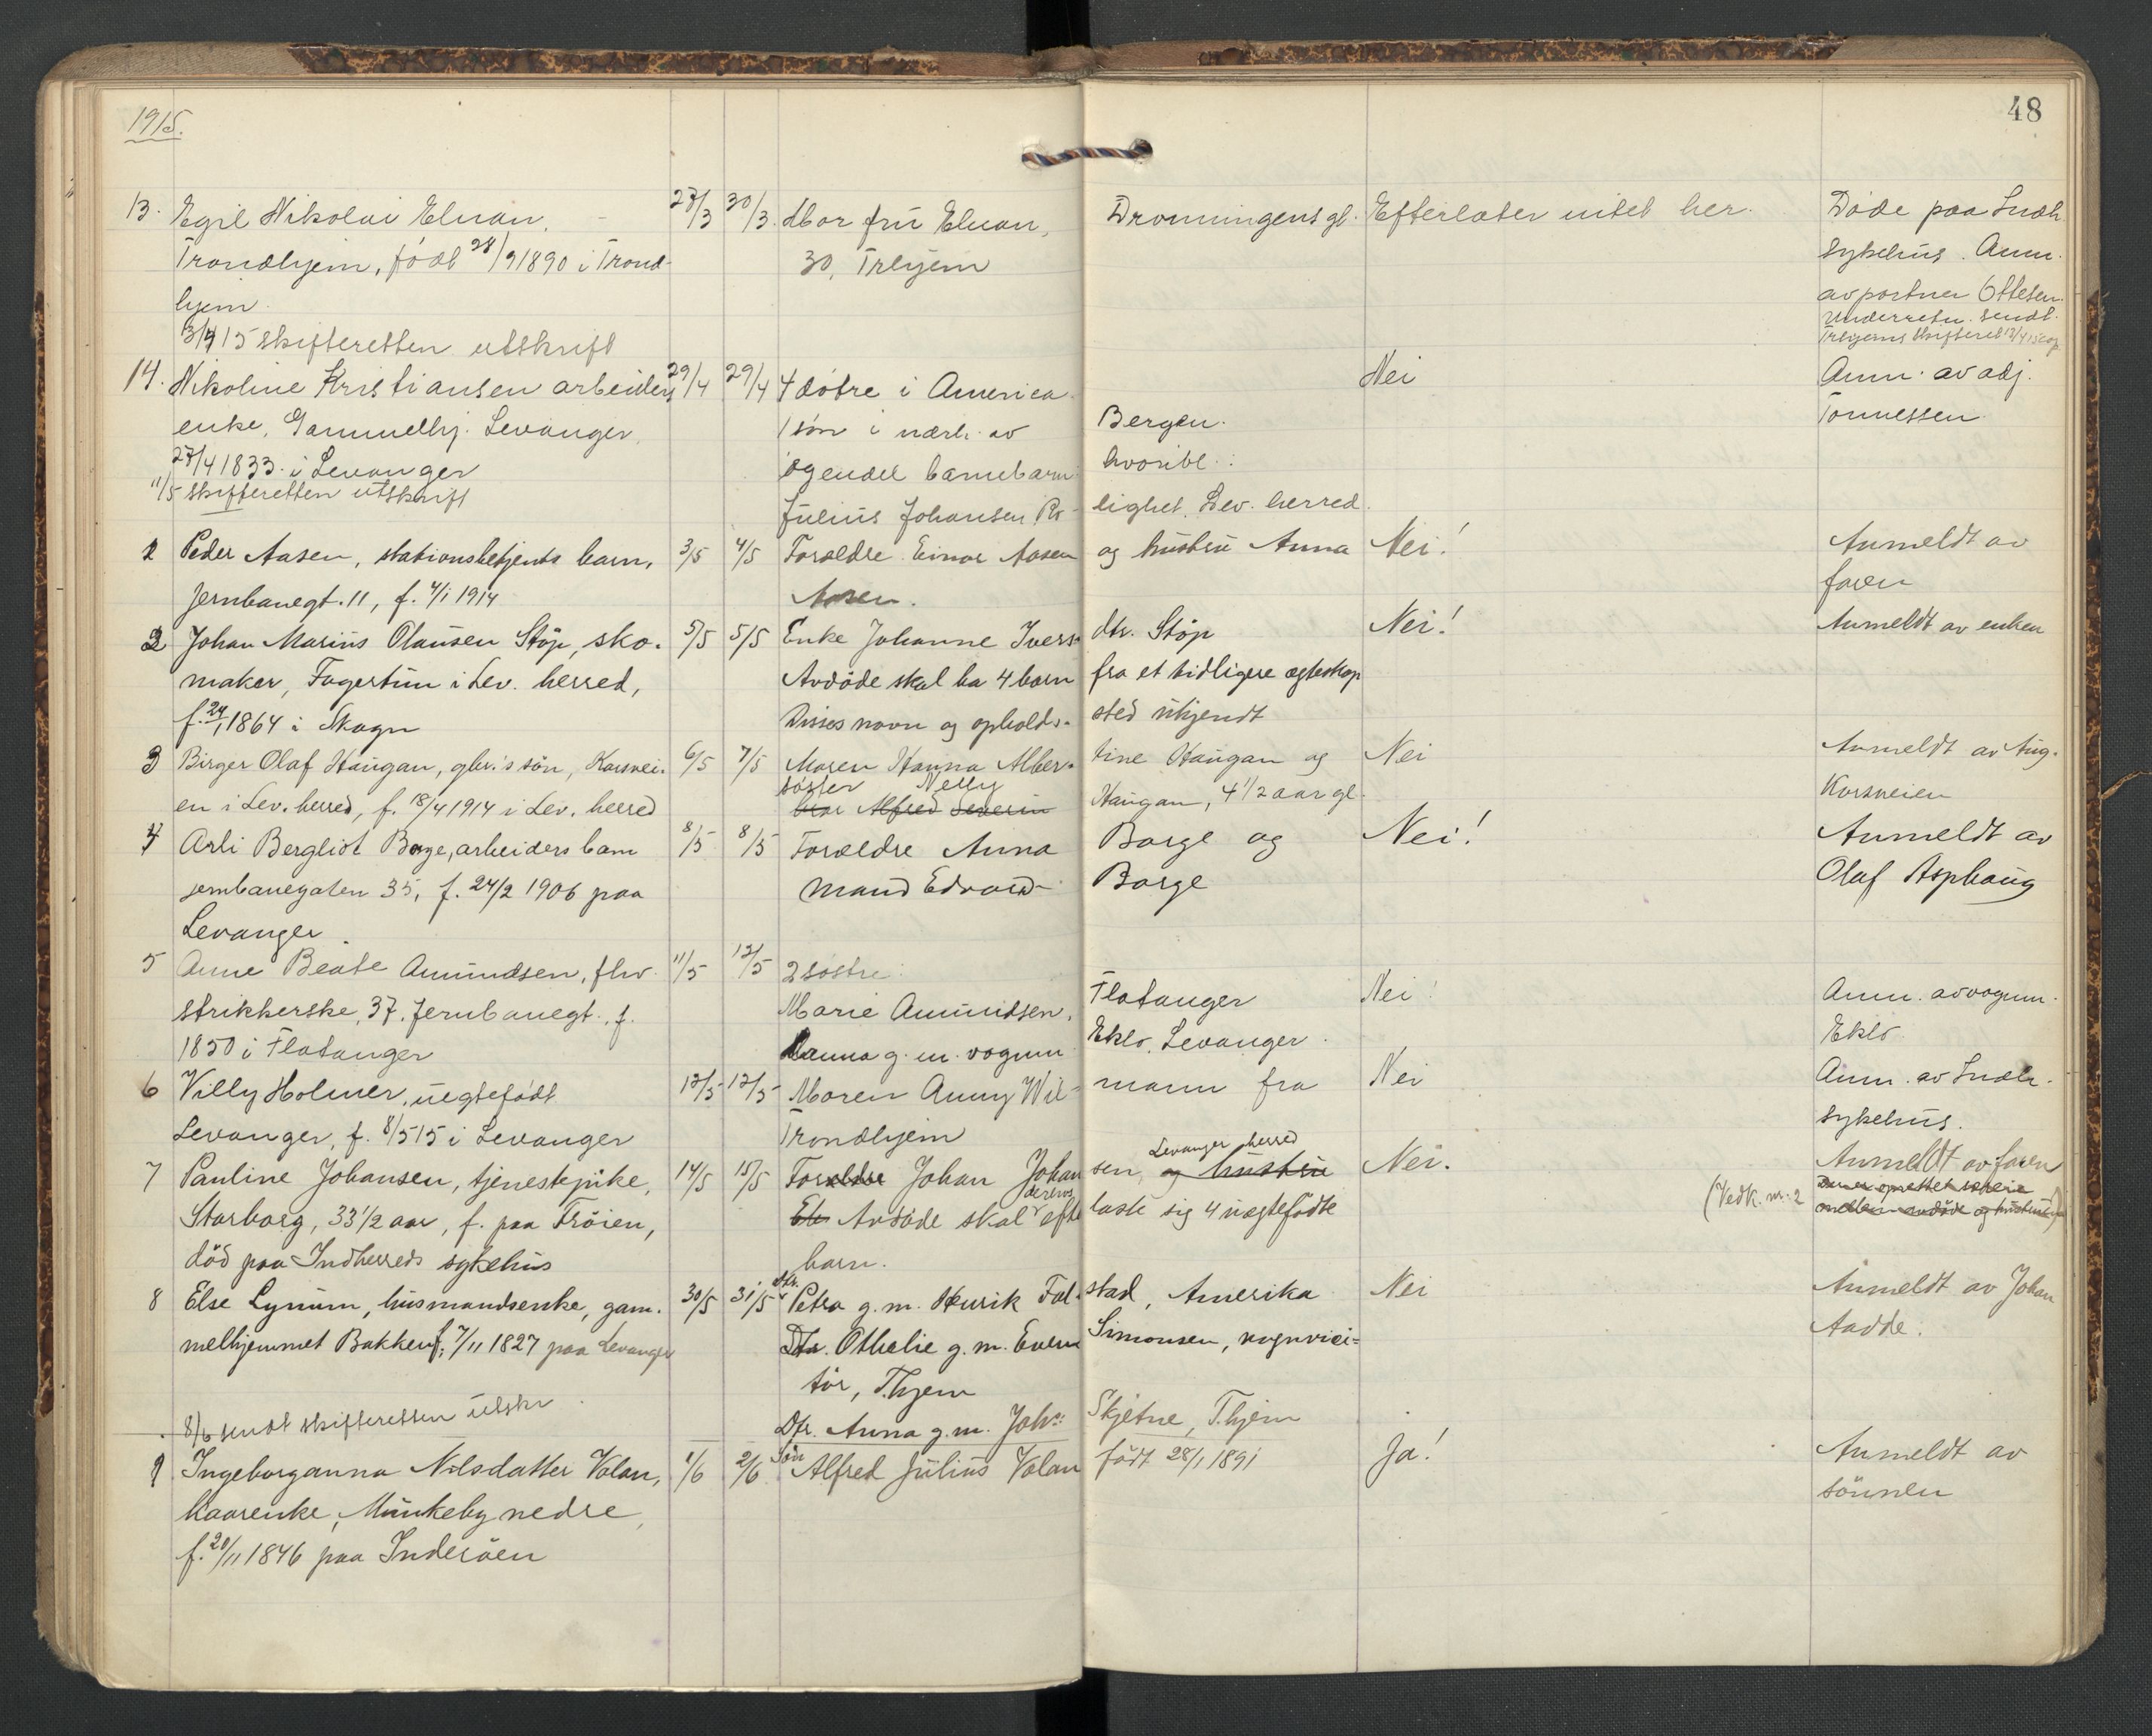 1915.
48
13. Egil Nikolai Eluan, 27/3 30/3. Mor fru Eluan, Dronningensgt. Efterlater intet her. Døde paa Indh.
Trondhjem, født 28/9 1890 i Trond- 30, Trhjem sykehus. Anm.
hjem. av portner Ottesen.
Underretn. sendt
3/4 15 skifteretten utskrift Trhjems skifteret 13/4 15
14. Nikoline Kristiansen arbeiders 29/4 29/4 4 døtre i America. Nei Anm. av adj.
enke, Gammelhj. Levanger, 1 søn i nærh. av Bergen. Tønnessen.
27/4 1833. i Levanger og endel barnebarn
11/5 skifteretten utskrift Julius Johansen Ro- lighet, Lev. herred.
1 Peder Aasen, stationsbetjents barn, 3/5 4/5 Forældre Einar Aasen og hustru Anna Nei! Anmeldt av
Jernbanegt. 11, f. 4/1 1914 Aasen. faren
2 Johan Marius Olausen Støp, sko- 5/5 5/5 Enke Johanne Ivers- dtr. Støp Nei! Anmeldt av enken
maker, Fagertun i Lev. herred, Avdøde skal ha 4 barn fra et tidligere ægteskap
f. 24/1 1864 i Skogn Disses navn og opholds- sted ukjendt
3 Birger Olaf Haugan, gbr.'s søn, Korsvei- 6/5 7/5 Maren Hanna Alber- tine Haugan og Nei Anmeldt av Aug.
søster Nelly
en i Lev. herred, f. 18/4 1914 i Lev. herred bror Alfred Severin Haugan, 4 1/2 aar gl. Korsveien
4 Arli Bergliot Borge, arbeiders barn 8/5 8/5 Forældre Anna Borge og Nei! Anmeldt av
jernbanegaten 35, f. 24/2 1906 paa mand Edvard Borge Olaf Asphaug
Levanger.
5 Anne Beate Amundsen, fhv. 11/5 12/5 2 søstre:
strikkerske, 37. Jernbanegt., f. Marie Amundsen, Flatanger Nei! Anm. av vognm.
1850 i Flatanger Danna g. m. vognm. Eklo, Levanger. Eklo
6 Villy Holmer, uegtefødt 12/5 12/5 Maren Anny Wil- mann fra Nei Anm. av Indh.
Levanger, f. 8/5 15 i Levanger Trondhjem sykehus.
Levanger herred
7 Pauline Johansen, tjenestepike, 14/5 15/5 Forældre Johan Johan sen, og hustru Nei. Anmeldt av faren
derhos
Storborg, 33 1/2 aar, f. paa Frøien, Avdøde skal efte latt sig 4 uegtefødte (Vedk. nr. 2 er oprettet særeie
mellem avdøde og hustru)
død paa Indherreds sykehus barn.
8 Else Lynum, husmandsenke, gam- 30/5 31/5 Dtr. Petra g. m. Henrik Fal- stad, Amerika Nei Anmeldt av Johan
melhjemmet Bakken, f. 7/11 1827 paa Levanger Dtr. Othelie g. m. Even Simonsen, vognvici- Aadde.
tør, T.hjem
8/6 sendt skifteretten utskr. Dtr. Anna g. m. Johs. Skjetne, T.hjem
9 Ingeborganna Nilsdatter Volan, 1/6 2/6 Søn Alfred Julius Volan født 28/1 1891 Ja! Anmeldt av
kaarenke, Munkeby nedre, sønnen
f. 20/11 1846 paa Inderøen